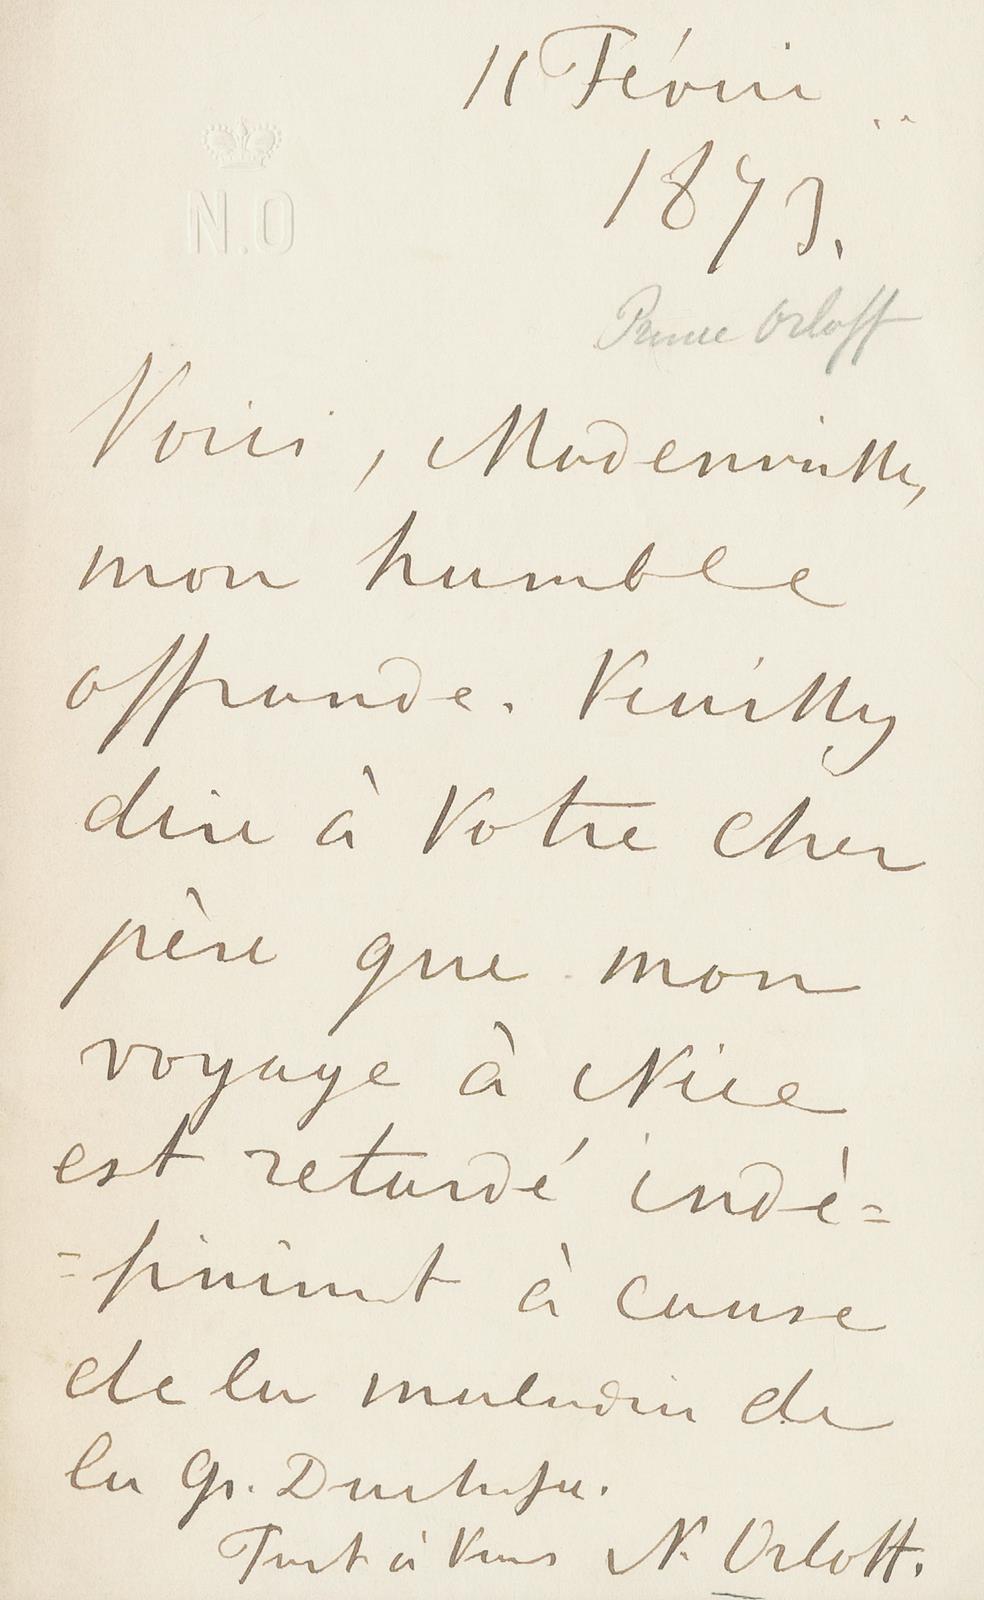 11 Février
1873.
N.O
Prince Orloff
Voici, Mademoiselle,
mon humble
offrande. Veuillez
dire à Votre cher
père que mon
voyage à Nice
est retardé indé=
=finiment à cause
de la maladie de
la Gr. Duchesse.
Tout à Vous N. Orloff.